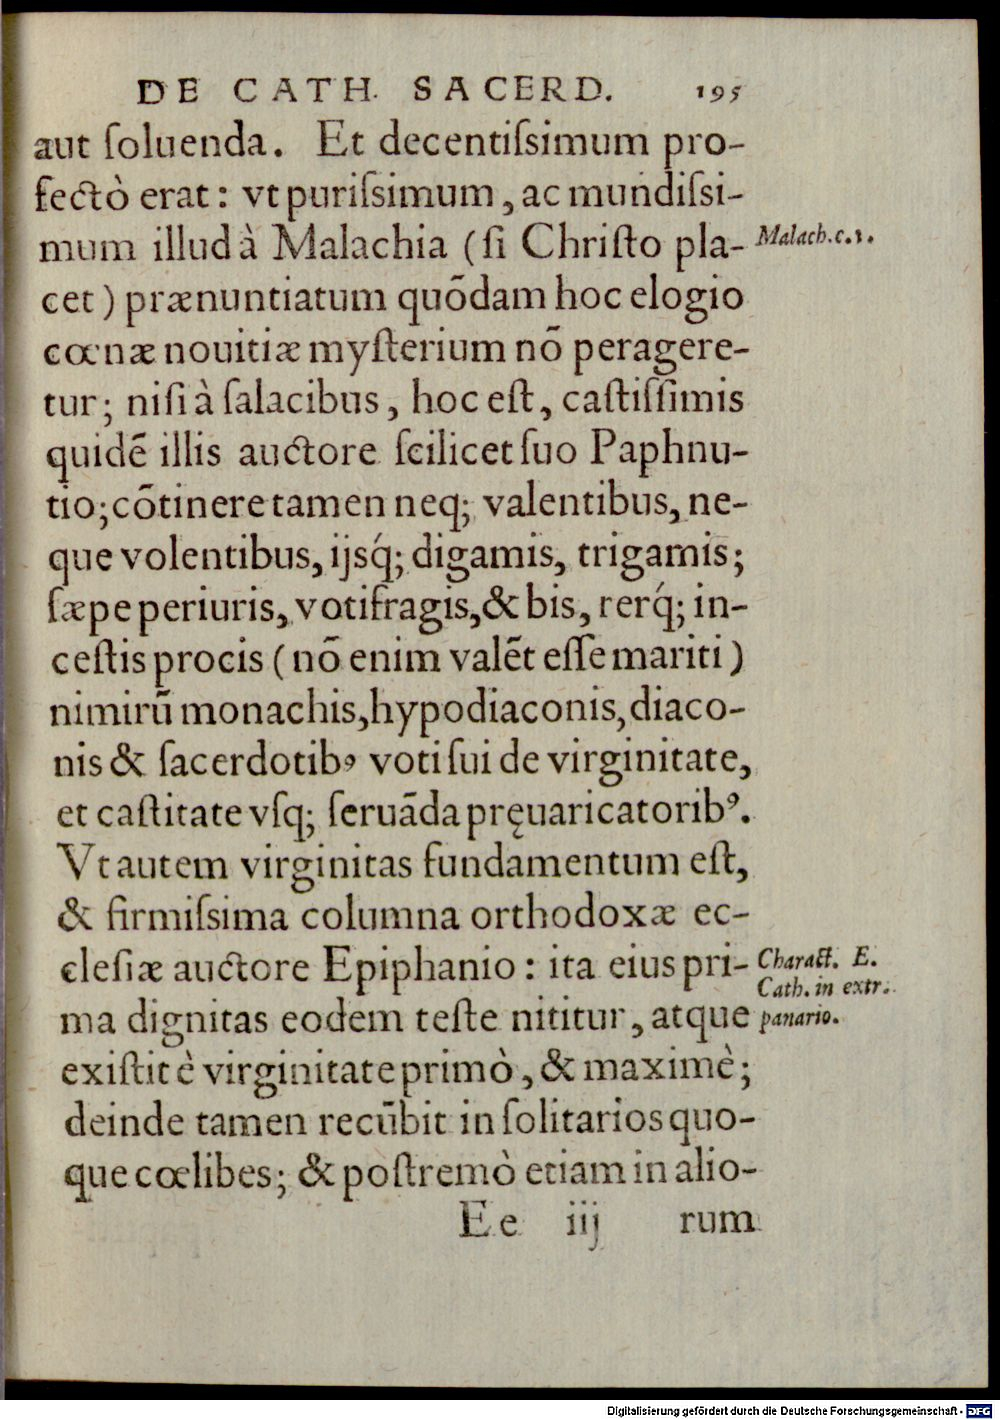 DE CATH. SACERD. 195
aut ſoluenda. Et decentiſsimum pro-
fectò erat: vt puriſsimum, ac mundiſsi-
mum illud à Malachia (ſi Chriſto pla-
Malach.c.1.
cet) prænuntiatum quõdam hoc elogio
cœnæ nouitiæ myſterium nõ peragere-
tur; niſi à ſalacibus, hoc eſt, caſtiſſimis
quidẽ illis auctore ſcilicet ſuo Paphnu-
tio; cõtinere tamen neq; valentibus, ne-
que volentibus, ijsq́; digamis, trigamis;
ſæpe periuris, votifragis, & bis, rerq́; in-
ceſtis procis (nõ enim valẽt eſſe mariti)
nimirũ monachis, hypodiaconis, diaco-
nis & ſacerdotibꝰ voti ſui de virginitate,
et caſtitate vſq; ſeruãda pręuaricatoribꝰ.
Vt autem virginitas fundamentum eſt,
& firmiſsima columna orthodoxæ ec-
cleſiæ auctore Epiphanio: ita eius pri-
ma dignitas eodem teſte nititur, atque
Charact. E.
Cath. in extr.
panario.
exiſtit è virginitate primò, & maximè;
deinde tamen recũbit in ſolitarios quo-
que cœlibes; & poſtremò etiam in alio-
Ee iij rum
Digitalisierung gefördert durch die Deutsche Forschungsgemeinschaft - DFG